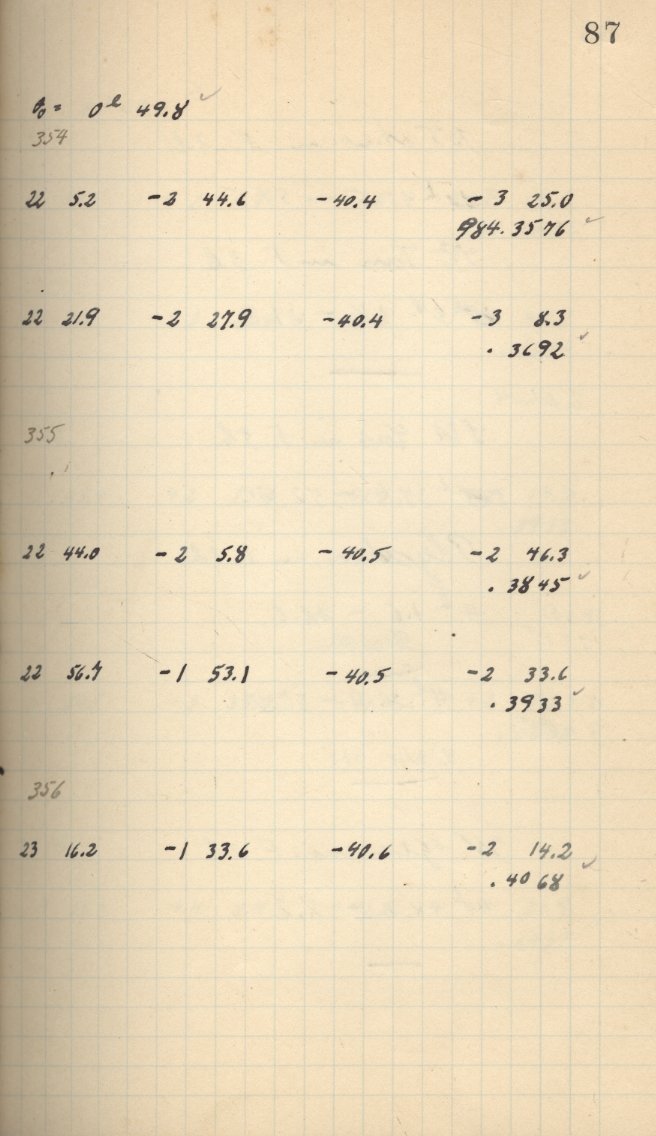 87
θ₀ = 0ʰ 49.8 ✓
354
22 5.2 -2 44.6 -40.4 -3 25.0
984.3576 ✓
22 21.9 -2 27.9 -40.4 -3 8.3
.3692 ✓
355
22 44.0 -2 5.8 -40.5 -2 46.3
.3845 ✓
22 56.7 -1 53.1 -40.5 -2 33.6
.3933 ✓
356
23 16.2 -1 33.6 -40.6 -2 14.2
.4068 ✓